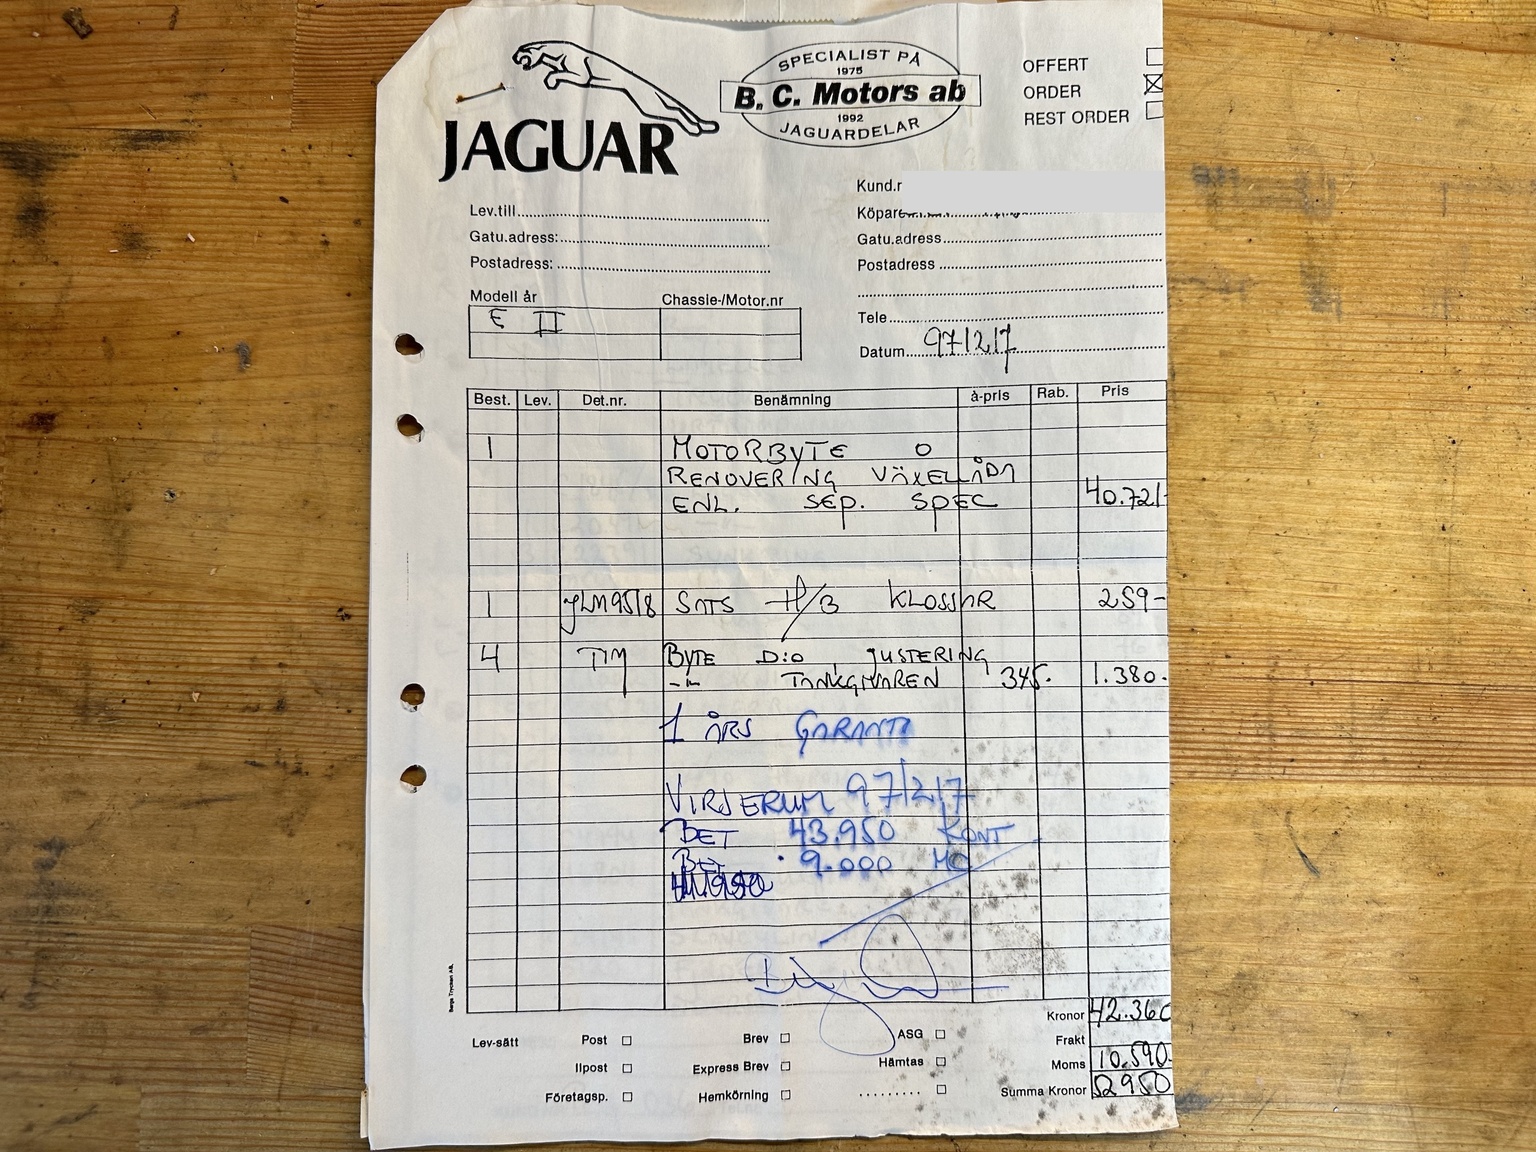 SPECIALIST PÅ
1975
B. C. Motors ab
1992
JAGUARDELAR
JAGUAR
OFFERT
ORDER
REST ORDER
Kund.r
Köpare
Lev.till
Gatu.adress:
Postadress:
Gatu.adress
Postadress
Tele
Datum 97/2/7
Modell år Chassie-/Motor.nr
E II
Best. Lev. Det.nr. Benämning à-pris Rab. Pris
1 MOTORBYTE O
RENOVERING VÄXELLÅDA
ENL. SEP. SPEC 40.721-
1 JLM9518 SATS H/B KLOSSAR 259-
4 TIM BYTE D:o, JUSTERING
-"- TANKGIVAREN 345. 1.380.
1 ÅRS GARANTI
VIRSERUM 97/2/7
BET 43.950 KONT
BET 9.000 MC
Bergs Tryckeri AB.
Kronor 42.360
Frakt
Moms 10.590.
Summa Kronor 52950
Lev-sätt Post Brev ASG
Ilpost Express Brev Hämtas
Företagsp. Hemkörning